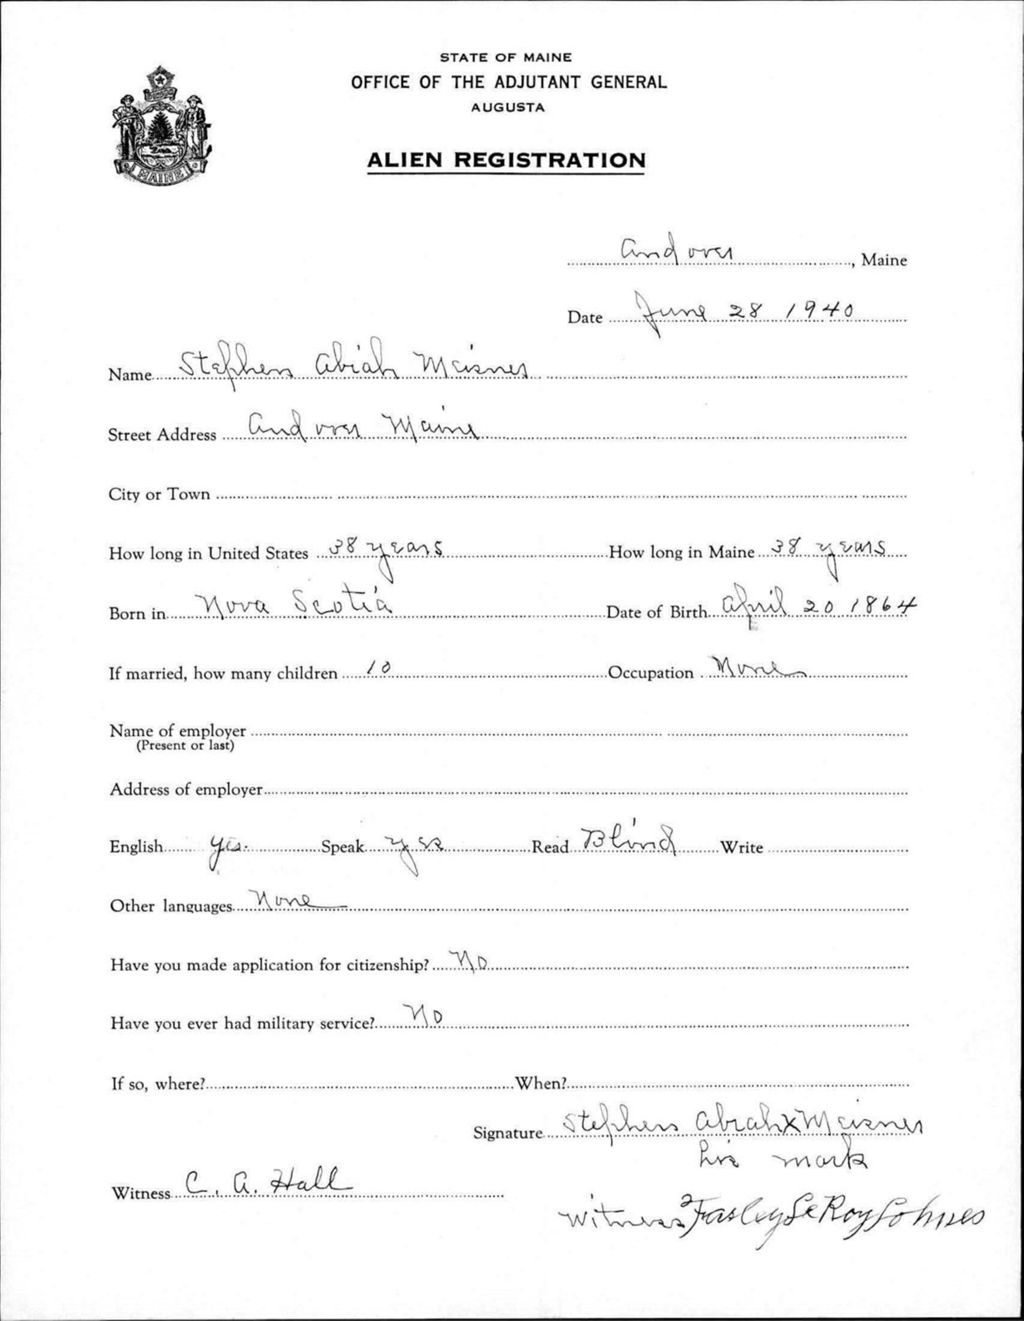 STATE OF MAINE
OFFICE OF THE ADJUTANT GENERAL
AUGUSTA
ALIEN REGISTRATION
MAINE
Andover, Maine
Date June 28 1940
Name Stephen Abiah Meisner
Street Address Andover Maine
City or Town
How long in United States 38 years How long in Maine 38 years
Born in Nova Scotia Date of Birth April 20 1864
If married, how many children 10 Occupation None
Name of employer
(Present or last)
Address of employer
English yes. Speak yes Read Blind Write
Other languages None
Have you made application for citizenship? No
Have you ever had military service? No
If so, where? When?
Signature Stephen Abiah X Meisner
his mark
Witness C. A. Hall
Witness LeRoy